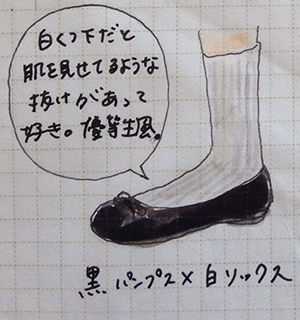 白くつ下だと
肌を見せてるような
抜けがあって
好き。優等生風。
黒パンプス×白ソックス